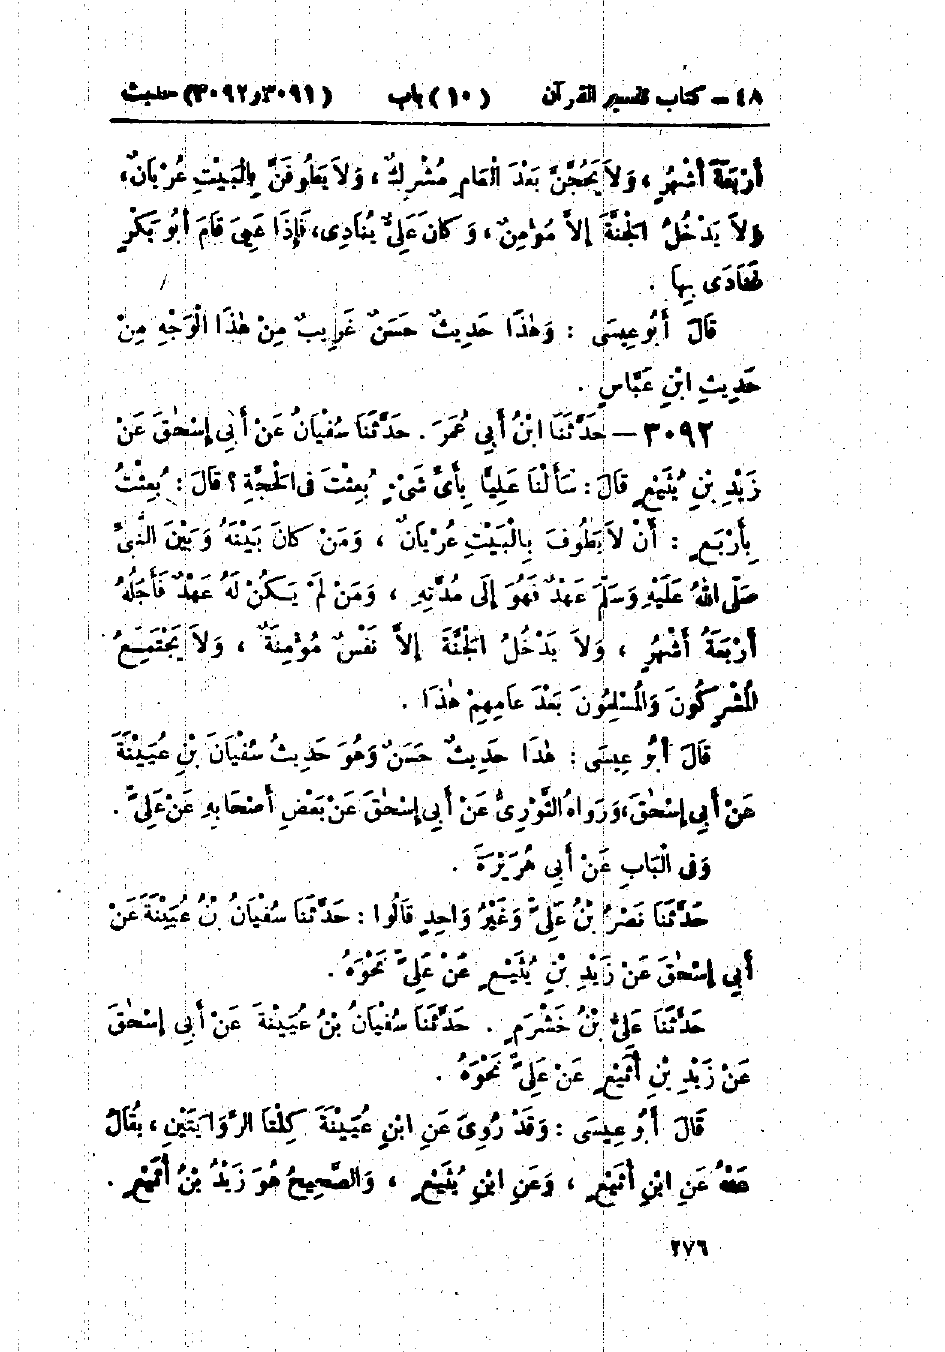 ٤٨ - كتاب تفسير القرآن (١٠) باب (٣٠٩١ و٣٠٩٢) حديث
أَرْبَعَةَ أَشْهُرٍ ، وَلاَ يَحُجَّنَّ بَعْدَ الْعَامِ مُشْرِكٌ ، وَلاَ يَطُوفَنَّ بِالْبَيْتِ عُرْيَانٌ،
وَلاَ يَدْخُلُ الْجَنَّةَ إِلاَّ مُؤْمِنٌ ، وَكَانَ عَلِيٌّ يُنَادِى، فَإِذَا عَيِىَ قَامَ أَبُو بَكْرٍ
فَنَادَى بِهَا .
قَالَ أَبُو عِيسَى : وَهٰذَا حَدِيثٌ حَسَنٌ غَرِيبٌ مِنْ هٰذَا الْوَجْهِ مِنْ
حَدِيثِ ابْنِ عَبَّاسٍ .
٣٠٩٢ - حَدَّثَنَا ابْنُ أَبِي عُمَرَ . حَدَّثَنَا سُفْيَانُ عَنْ أَبِي إِسْحٰقَ عَنْ
زَيْدِ بْنِ يُثَيْعٍ قَالَ : سَأَلْنَا عَلِيًّا بِأَىِّ شَىْءٍ بُعِثْتَ فِى الْحَجَّةِ ؟ قَالَ : بُعِثْتُ
بِأَرْبَعٍ : أَنْ لاَ يَطُوفَ بِالْبَيْتِ عُرْيَانٌ ، وَمَنْ كَانَ بَيْنَهُ وَبَيْنَ النَّبِىِّ
صَلَّى اللهُ عَلَيْهِ وَسَلَّمَ عَهْدٌ فَهُوَ إِلَى مُدَّتِهِ ، وَمَنْ لَمْ يَكُنْ لَهُ عَهْدٌ فَأَجَلُهُ
أَرْبَعَةُ أَشْهُرٍ ، وَلاَ يَدْخُلُ الْجَنَّةَ إِلاَّ نَفْسٌ مُؤْمِنَةٌ ، وَلاَ يَجْتَمِعُ
الْمُشْرِكُونَ وَالْمُسْلِمُونَ بَعْدَ عَامِهِمْ هٰذَا .
قَالَ أَبُو عِيسَى : هٰذَا حَدِيثٌ حَسَنٌ وَهُوَ حَدِيثُ سُفْيَانَ بْنِ عُيَيْنَةَ
عَنْ أَبِي إِسْحٰقَ، وَرَوَاهُ الثَّوْرِىُّ عَنْ أَبِي إِسْحٰقَ عَنْ بَعْضِ أَصْحَابِهِ عَنْ عَلِيٍّ .
وَفِى الْبَابِ عَنْ أَبِي هُرَيْرَةَ .
حَدَّثَنَا نَصْرُ بْنُ عَلِيٍّ وَغَيْرُ وَاحِدٍ قَالُوا : حَدَّثَنَا سُفْيَانُ بْنُ عُيَيْنَةَ عَنْ
أَبِي إِسْحٰقَ عَنْ زَيْدِ بْنِ يُثَيْعٍ عَنْ عَلِيٍّ نَحْوَهُ .
حَدَّثَنَا عَلِيُّ بْنُ خَشْرَمٍ . حَدَّثَنَا سُفْيَانُ بْنُ عُيَيْنَةَ عَنْ أَبِي إِسْحٰقَ
عَنْ زَيْدِ بْنِ أُثَيْعٍ عَنْ عَلِيٍّ نَحْوَهُ .
قَالَ أَبُو عِيسَى : وَقَدْ رُوِىَ عَنِ ابْنِ عُيَيْنَةَ كِلْتَا الرِّوَايَتَيْنِ ، يُقَالُ
عَنْهُ عَنِ ابْنِ أُثَيْعٍ ، وَعَنِ ابْنِ يُثَيْعٍ ، وَالصَّحِيحُ هُوَ زَيْدُ بْنُ أُثَيْعٍ .
٢٧٦